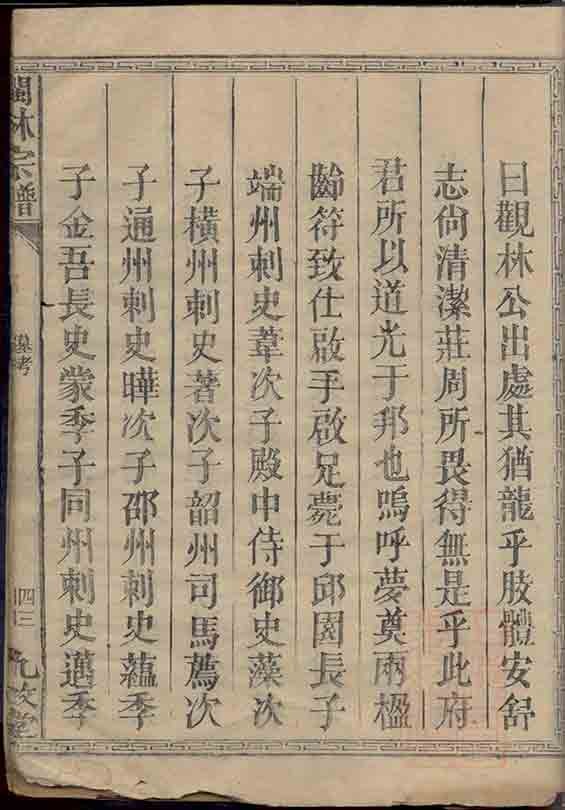 曰觀林公出處其猶龍乎肢體安舒
志尙清潔莊周所畏得無是乎此府
君所以道光于邦也嗚呼夢奠兩楹
齡符致仕啟手啟足薨于邱園長子
端州刺史葦次子殿中侍御史藻次
子橫州刺史著次子韶州司馬薦次
子通州刺史曄次子邵州刺史蘊季
子金吾長史蒙季子同州刺史邁季
閩林宗譜
墓考
四三
九牧堂